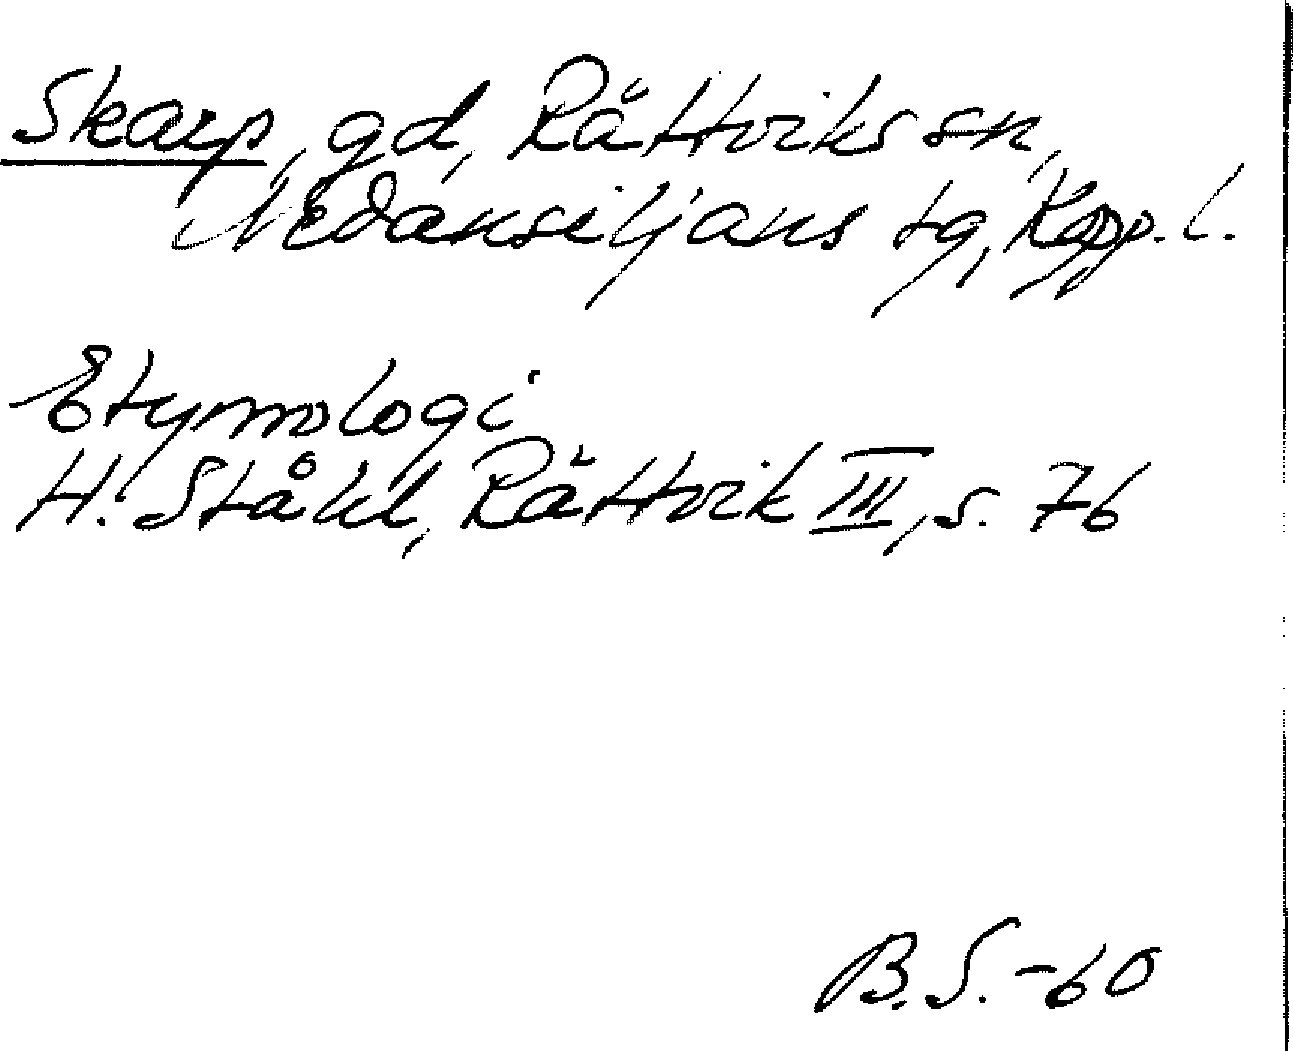 Skarp, gd, Rättviks sn,
Nedansiljans tg, Kopp. l.
Etymologi
H. Ståhl, Rättvik III, s. 76
B.S. -60